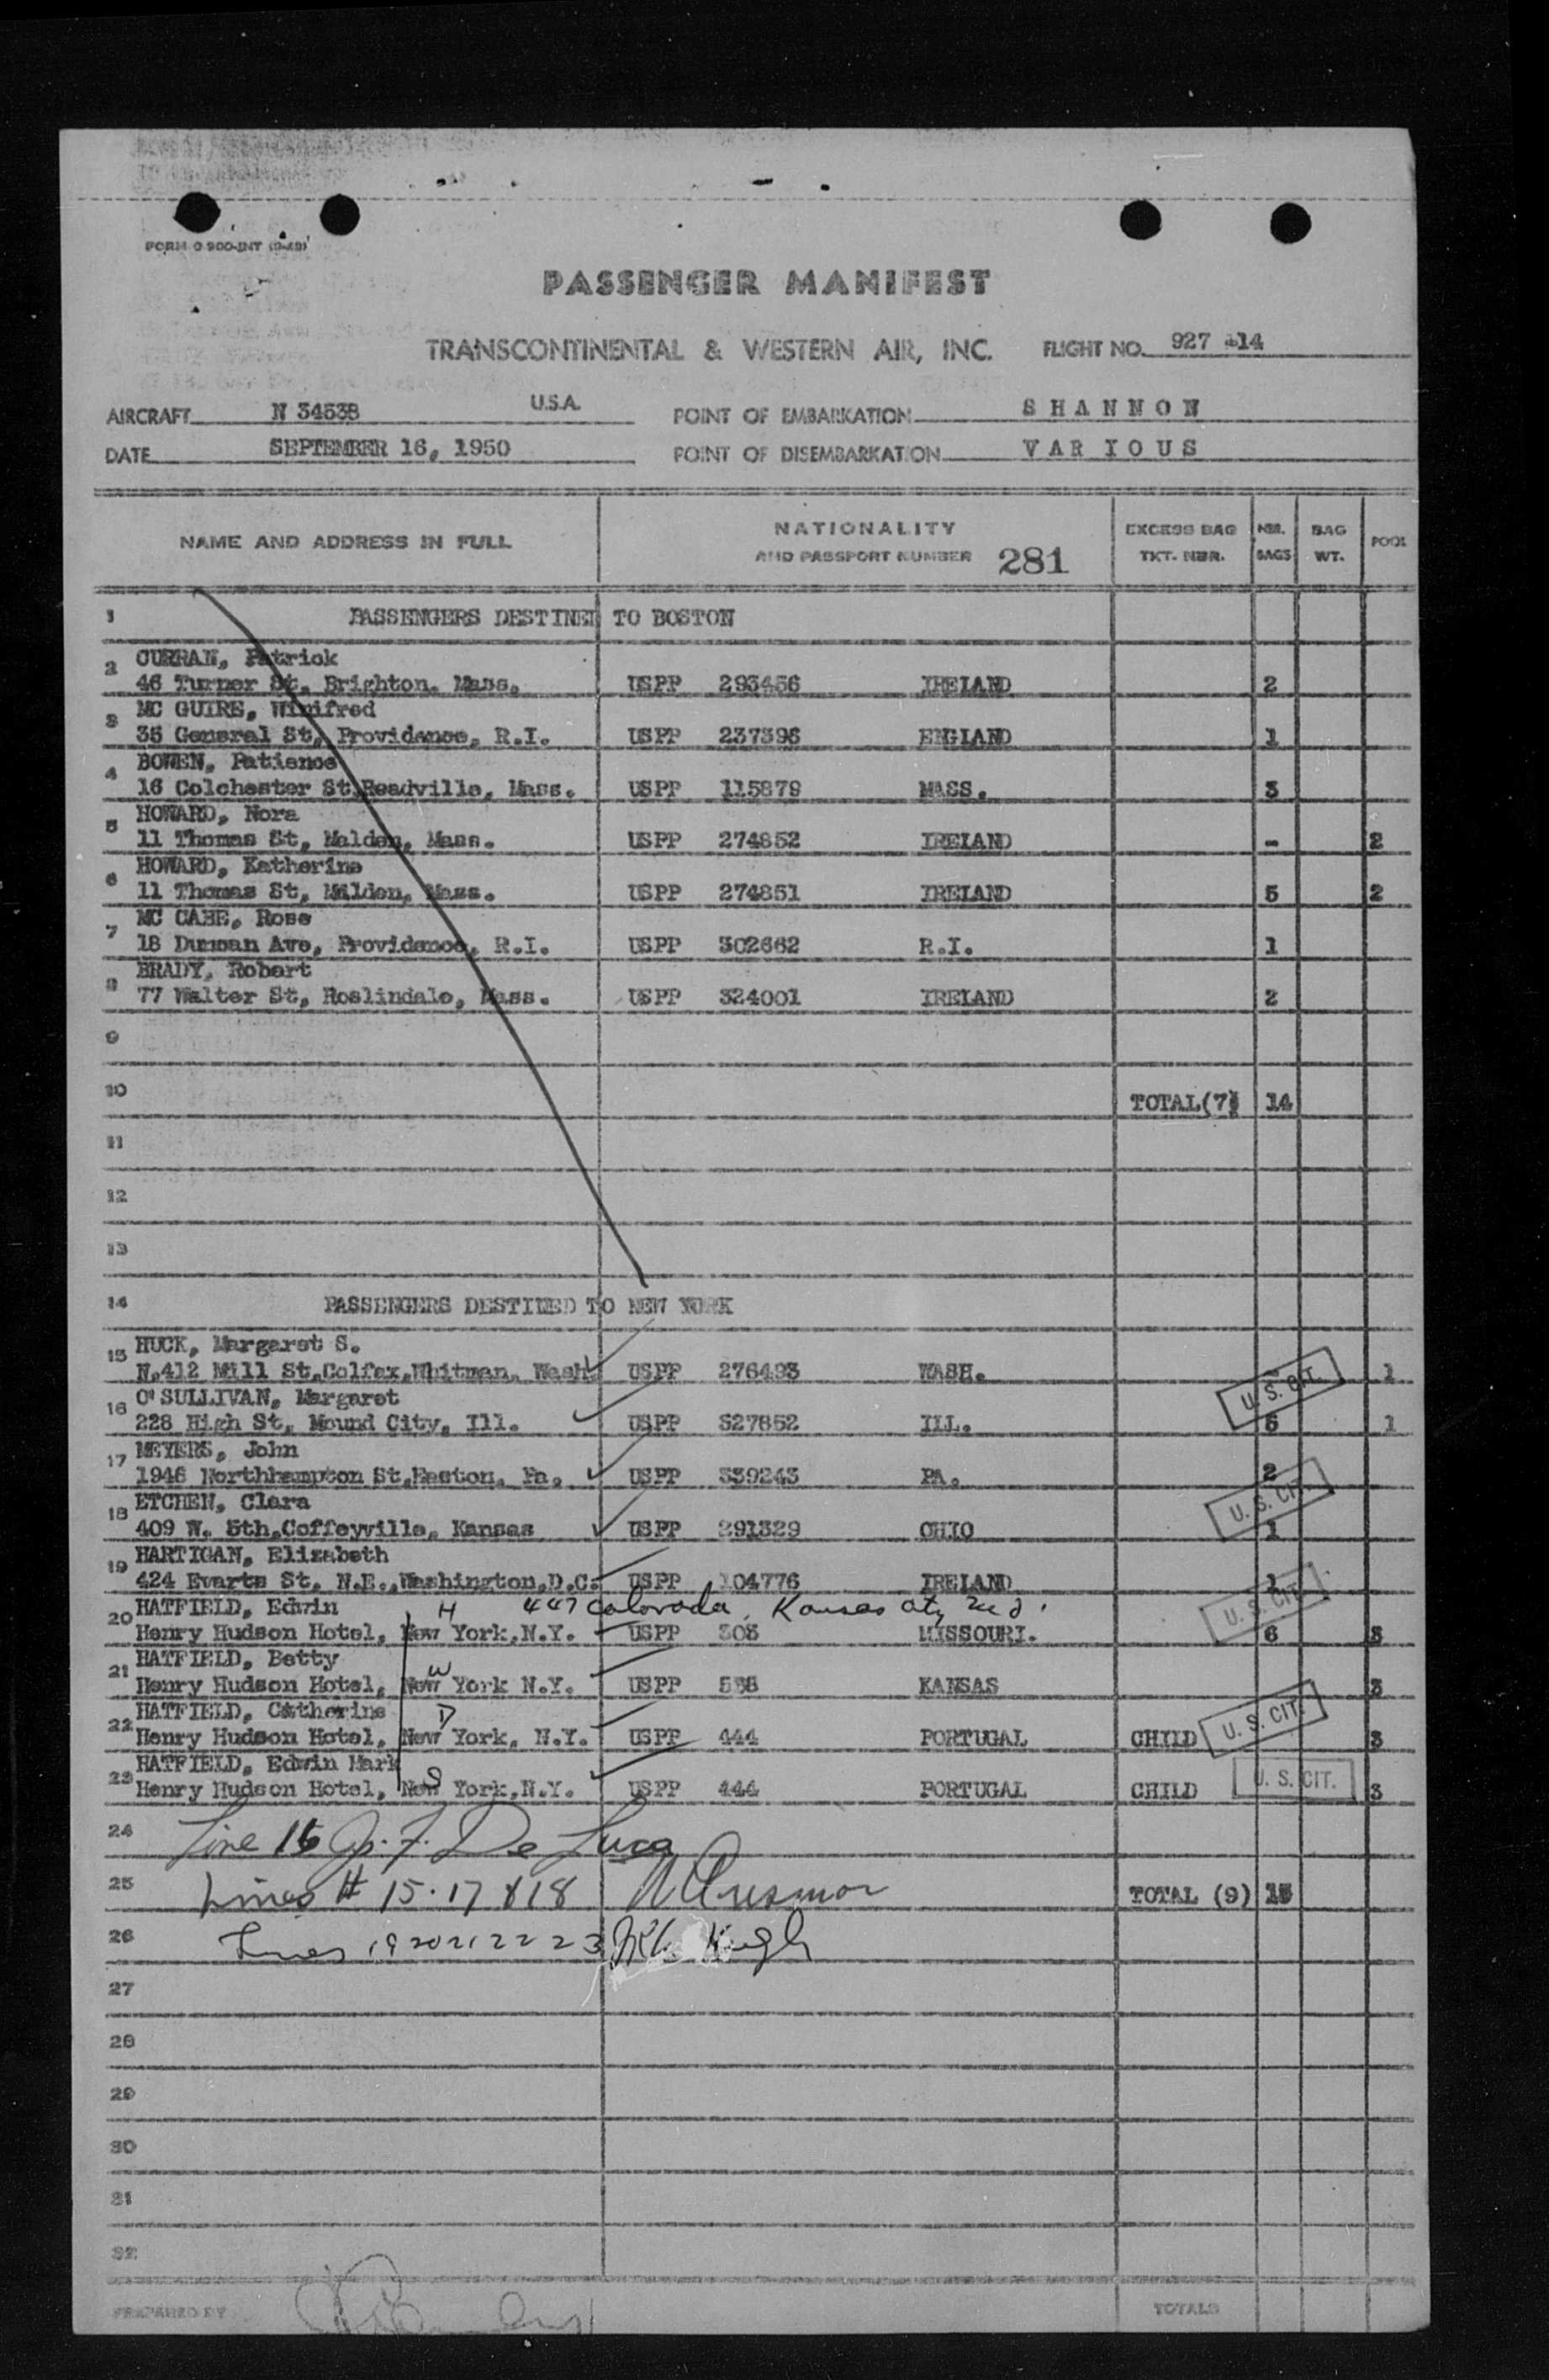 FORM O 900-INT (9-48)
PASSENGER MANIFEST
TRANSCONTINENTAL & WESTERN AIR, INC. FLIGHT NO. 927 #14
AIRCRAFT N 34538 U.S.A. POINT OF EMBARKATION SHANNON
DATE SEPTEMBER 16, 1950 POINT OF DISEMBARKATION VARIOUS
NAME AND ADDRESS IN FULL NATIONALITY AND PASSPORT NUMBER 281 EXCESS BAG TKT. NBR. NBR. BAGS BAG WT. POOL
1 PASSENGERS DESTINED TO BOSTON
2 CURRAN, Patrick
46 Turner St. Brighton. Mass. USPP 293456 IRELAND 2
3 MC GUIRE, Winifred
35 General St, Providence, R.I. USPP 237396 ENGLAND 1
4 BOWEN, Patience
16 Colchester St, Readville, Mass. USPP 115879 MASS. 3
5 HOWARD, Nora
11 Thomas St, Malden, Mass. USPP 274852 IRELAND - 2
6 HOWARD, Katherine
11 Thomas St, Milden, Mass. USPP 274851 IRELAND 5 2
7 MC CABE, Rose
18 Duncan Ave, Providence, R.I. USPP 302662 R.I. 1
8 BRADY, Robert
77 Walter St, Roslindale, Mass. USPP 324001 IRELAND 2
9
10 TOTAL(7) 14
11
12
13
14 PASSENGERS DESTINED TO NEW YORK
15 HUCK, Margaret S.
N.412 Mill St,Colfax,Whitman, Wash. USPP 276493 WASH. 1
U. S. CIT.
16 O'SULLIVAN, Margaret
228 High St, Mound City, Ill. USPP 327852 ILL. 5 1
17 MEYERS, John
1946 Northhampton St,Easton, Pa. USPP 339243 PA. 2
U. S. CIT.
18 ETCHEN, Clara
409 W. 5th,Coffeyville, Kansas USPP 291329 OHIO 1
19 HARTIGAN, Elizabeth
424 Evarts St. N.E.,Washington,D.C. USPP 104776 IRELAND 1
U. S. CIT.
20 HATFIELD, Edwin H 447 Colorada, Kansas City
Henry Hudson Hotel, New York,N.Y. USPP 303 MISSOURI. 6 3
21 HATFIELD, Betty W
Henry Hudson Hotel, New York N.Y. USPP 538 KANSAS 3
22 HATFIELD, Catherine D
Henry Hudson Hotel, New York, N.Y. USPP 444 PORTUGAL CHILD U. S. CIT. 3
23 HATFIELD, Edwin Mark S
Henry Hudson Hotel, New York,N.Y. USPP 444 PORTUGAL CHILD U. S. CIT. 3
24 Line 16 J. F. De Luca
25 Lines # 15.17 & 18 TOTAL (9) 15
26 Lines 19 20 21 22 23
27
28
29
30
31
32
PREPARED BY TOTALS